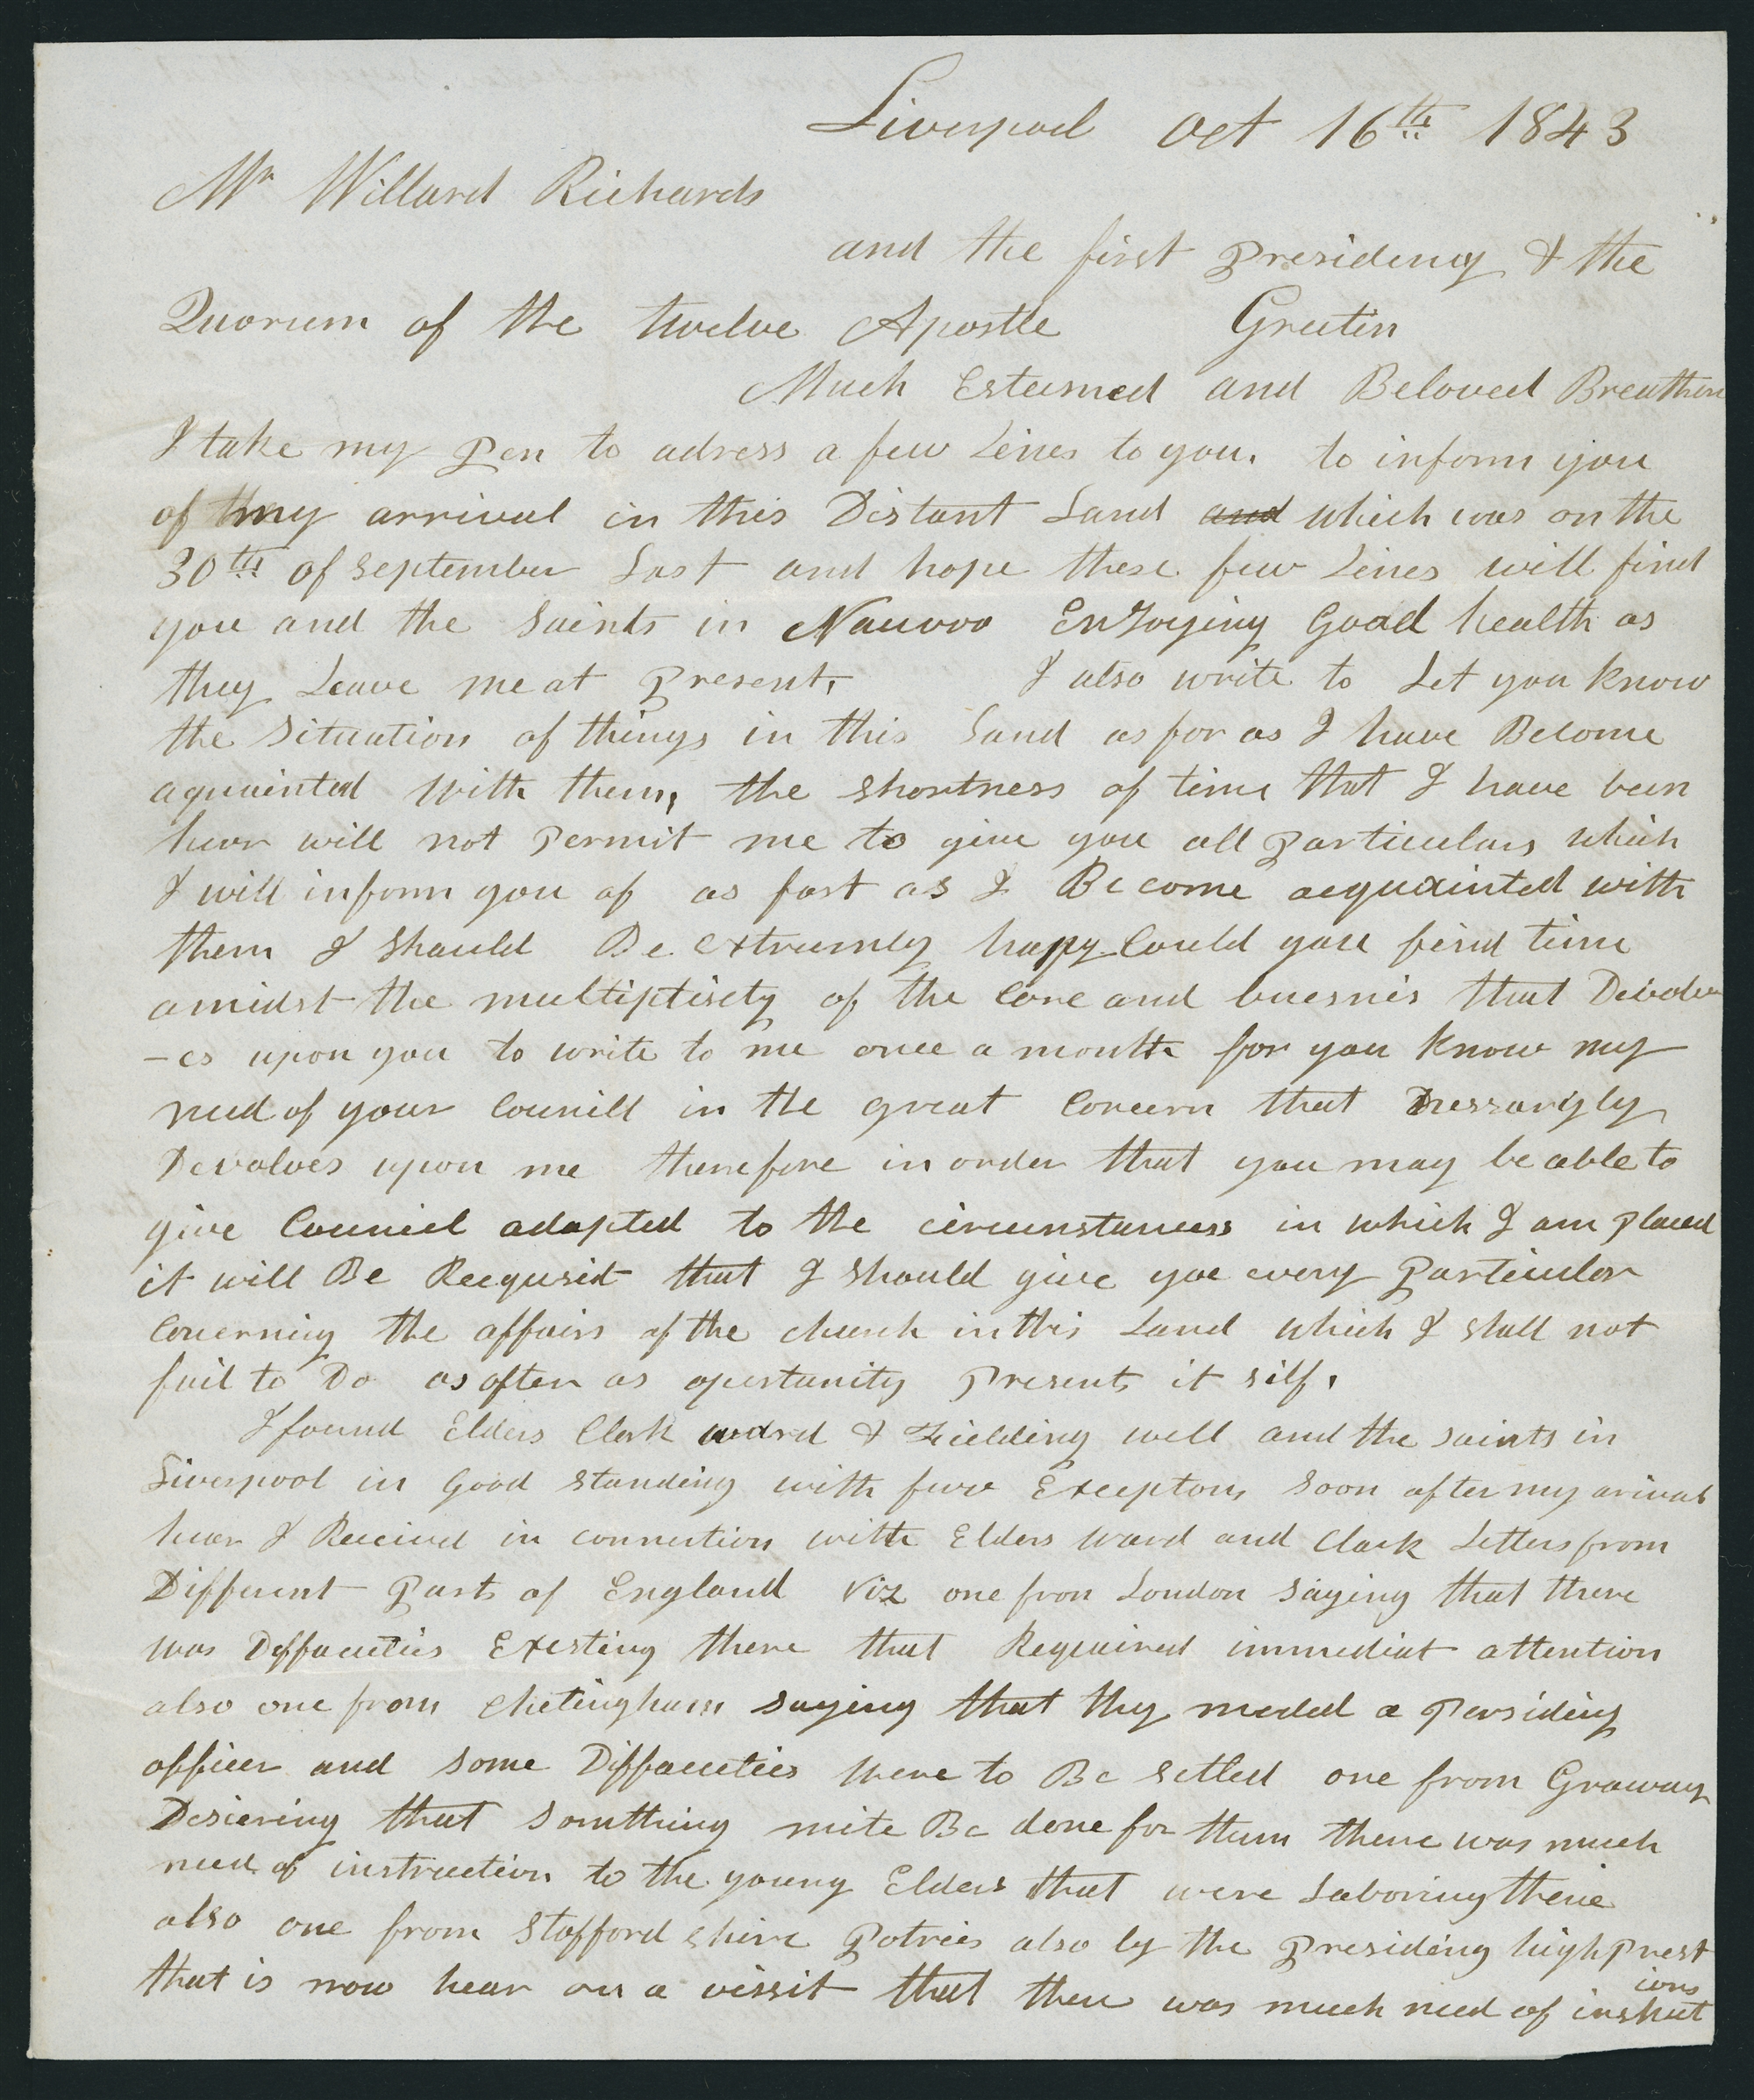 Liverpool Oct 16th 1843
Mr Willard Richards
and the first Presidency & the
Quorum of the twelve Apostle Greetin
Much Esteemed and Beloved Breathren
I take my Pen to adress a few Lines to you. to inform you
of my arrival in this Distant Land and which was on the
30th of September Last and hope these few Lines will find
you and the Saints in Nauvoo Enjoying Good health as
they Leave me at Present, I also write to Let you know
the Situation of things in this Land as far as I have Become
aquainted With them, the Shortness of time that I have been
hear will not Permit me to give you all Particulars which
I will inform you of as fast as I Become acquainted with
them I Should Be extreemly happy Could you find time
amidst the multiplisity of the Care and buesnis that Devolv
-es upon you to write to me once a month for you Know my
need of your Councill in the great Concern that
Devolves upon me therefore in order that you may be able to
give Council adapted to the circumstances in which I am Placed
it will Be Requsit that I Should give you every Particular
Concerning the affairs of the church in this Land which I shall not
fail to Do as often as opertunity Presents it self.
I found Elders Clark ward & Fielding well and the saints in
Liverpool in Good Standing with few Exceptons Soon after my arival
hear I Received in connection with Elders Ward and Clark Letters from
Different Parts of England Viz one from London Saying that there
was Deffaculties Existing there that Required immediat attention
also one from Cheltingham saying that they needed a Persiding
officer and Some Diffaculties were to Be Setled one from
Desiering that Somthing mite Be done for them there was much
need of instruction to the young Elders that were Laboring there
also one from Stafford shire Potries also by the Presiding high Prest
that is now hear on a vissit that there was much need of instruct
ions